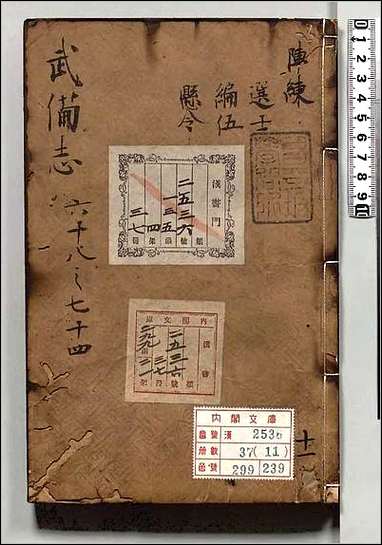 陣練
選士
編伍
懸令
武備志 六十八之七十四
漢書門
二五三六
一三五
四
三七
類
號
函
架
冊
内閣文庫
漢書
二五三六
三七
二九九
內閣文庫
番號 漢 2536
冊數 37(11)
函號 299 239
十一
1 2 3 4 5 6 7 8 9 10